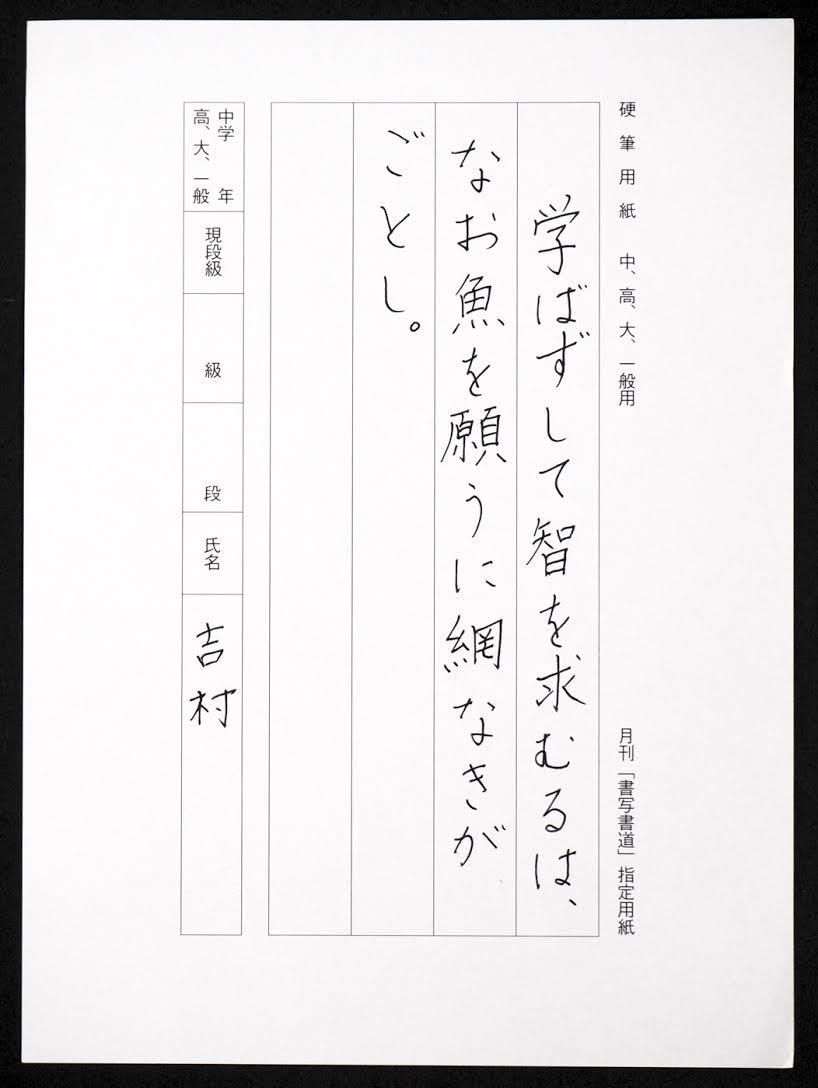 硬筆用紙 中、高、大、一般用 月刊「書写書道」指定用紙
学ばずして智を求むるは、
なお魚を願うに網なきが
ごとし。
中学 年
高、大、一般
現段級
級
段
氏名
吉村